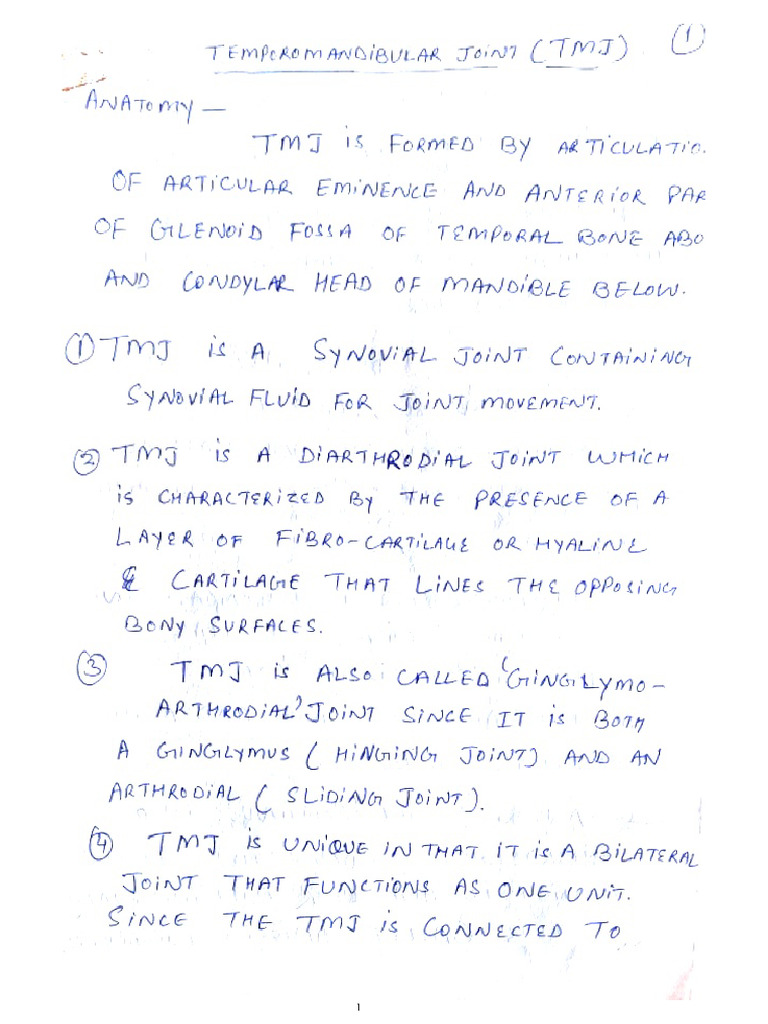 TEMPOROMANDIBULAR JOINT (TMJ) 1
ANATOMY —
TMJ IS FORMED BY ARTICULATIO
OF ARTICULAR EMINENCE AND ANTERIOR PAR
OF GLENOID FOSSA OF TEMPORAL BONE ABO
AND CONDYLAR HEAD OF MANDIBLE BELOW.
1 TMJ IS A SYNOVIAL JOINT CONTAINING
SYNOVIAL FLUID FOR JOINT MOVEMENT.
2 TMJ IS A DIARTHRODIAL JOINT WHICH
IS CHARACTERIZED BY THE PRESENCE OF A
LAYER OF FIBRO-CARTILAGE OR HYALINE
CARTILAGE THAT LINES THE OPPOSING
BONY SURFACES.
3 TMJ IS ALSO CALLED 'GINGILYMO-
ARTHRODIAL' JOINT SINCE IT IS BOTH
A GINGLYMUS (HINGING JOINT) AND AN
ARTHRODIAL (SLIDING JOINT).
4 TMJ IS UNIQUE IN THAT IT IS A BILATERAL
JOINT THAT FUNCTIONS AS ONE UNIT.
SINCE THE TMJ IS CONNECTED TO
1